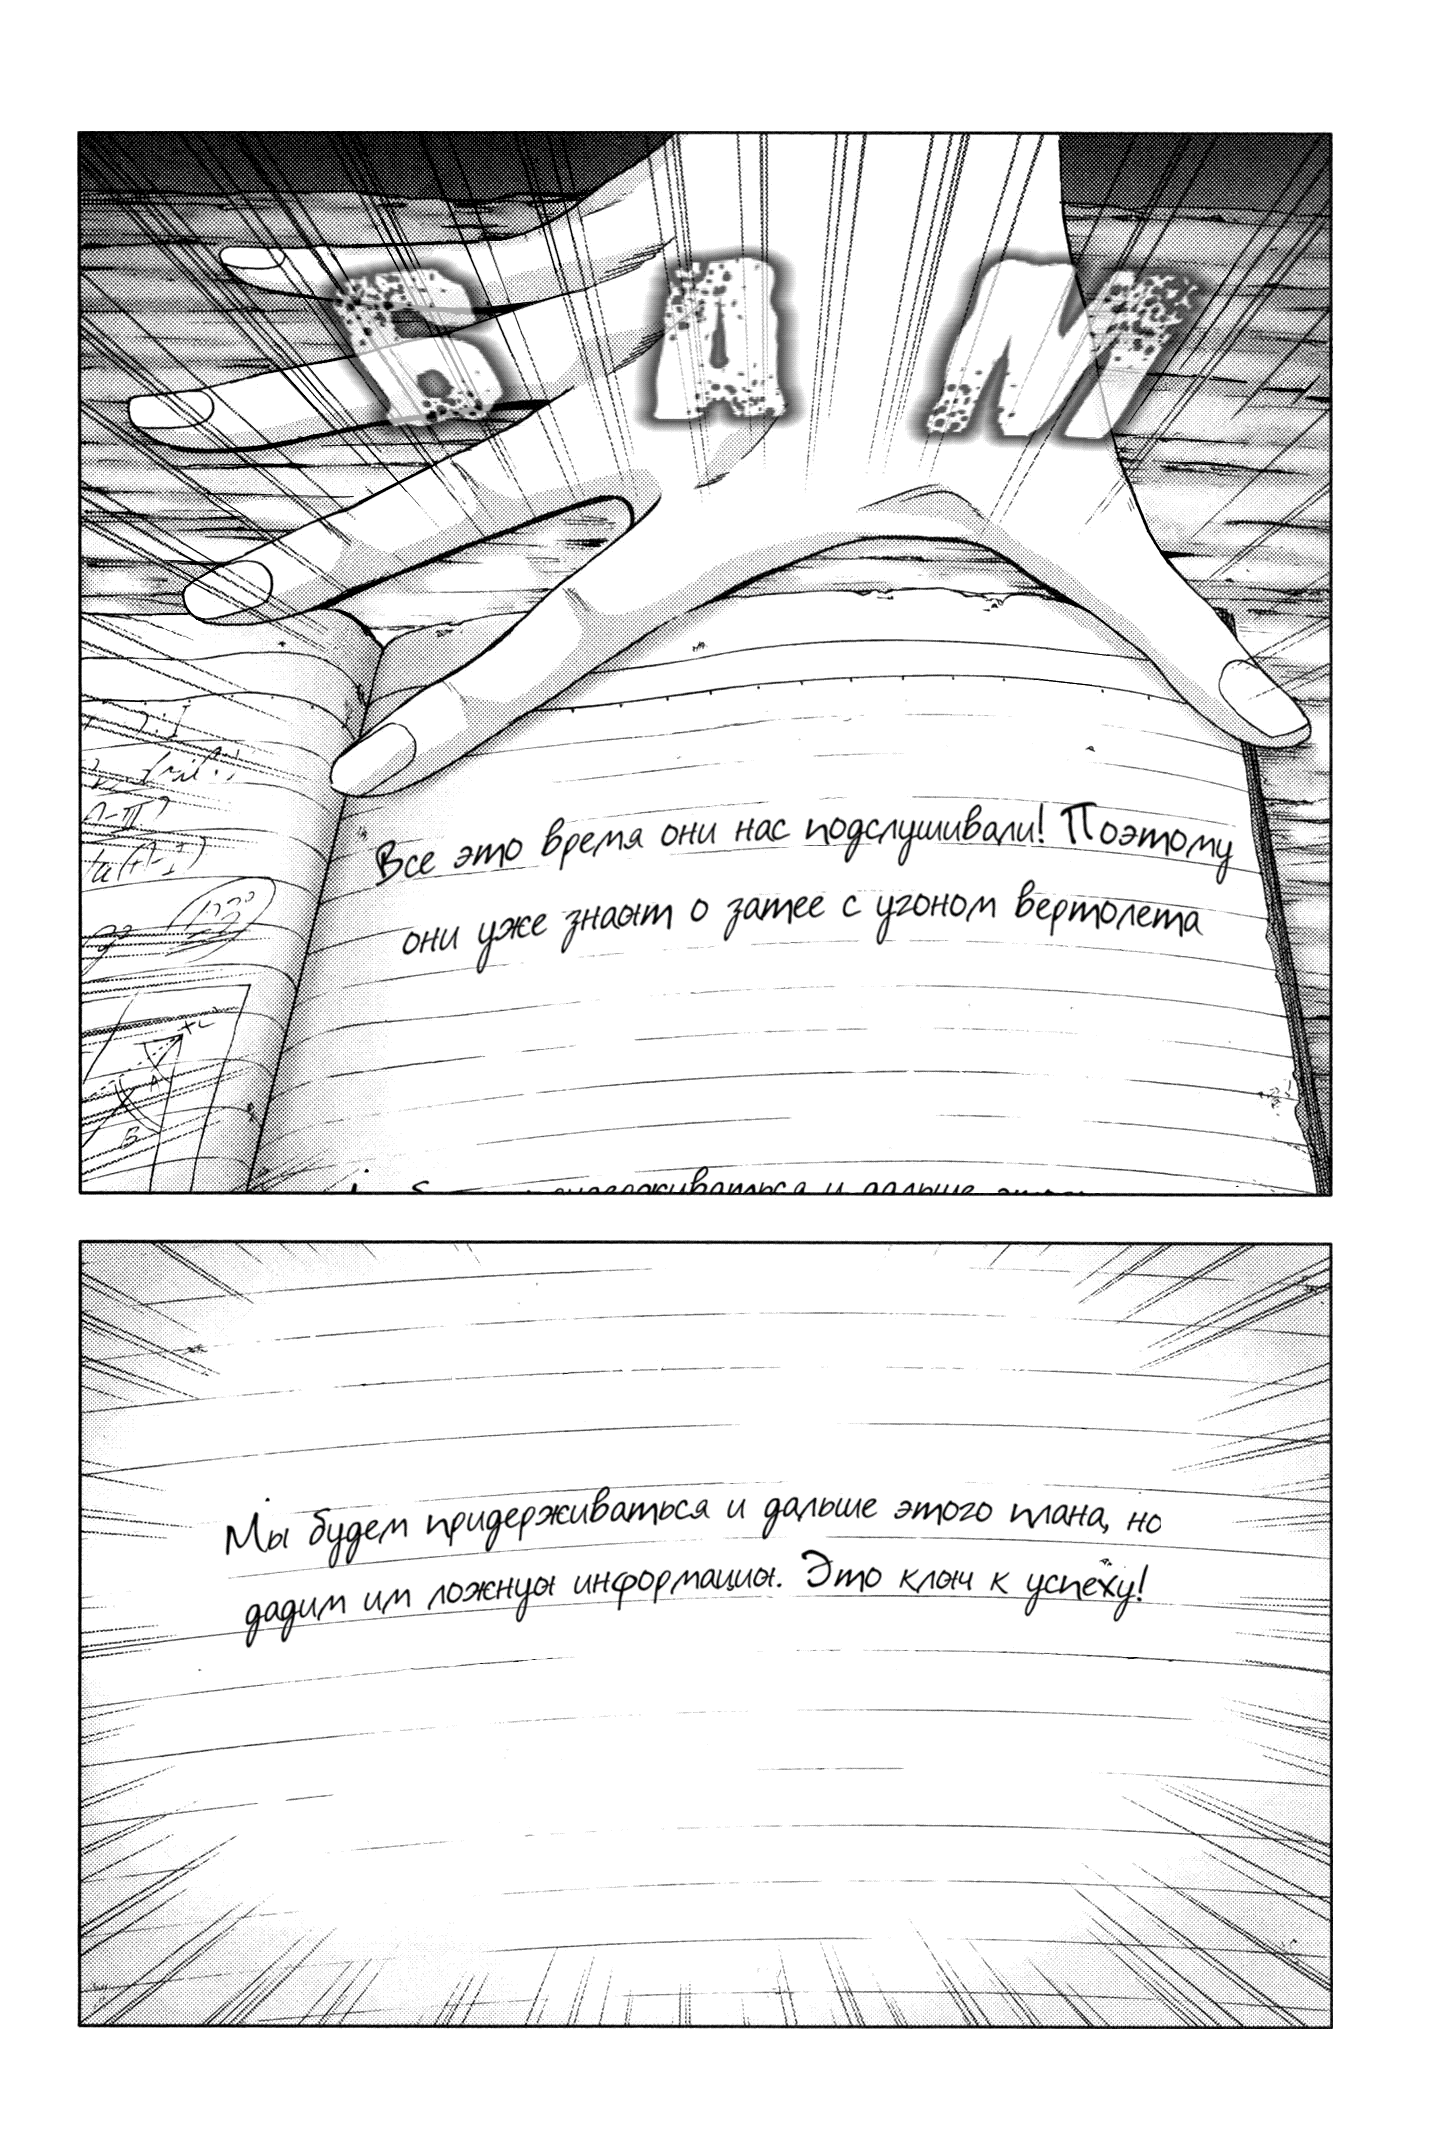 БАМ
Все это время они нас подслушивали! Поэтому
они уже знают о затее с угоном вертолета
Мы будем придерживаться и дальше этого плана, но
дадим им ложную информацию. Это ключ к успеху!